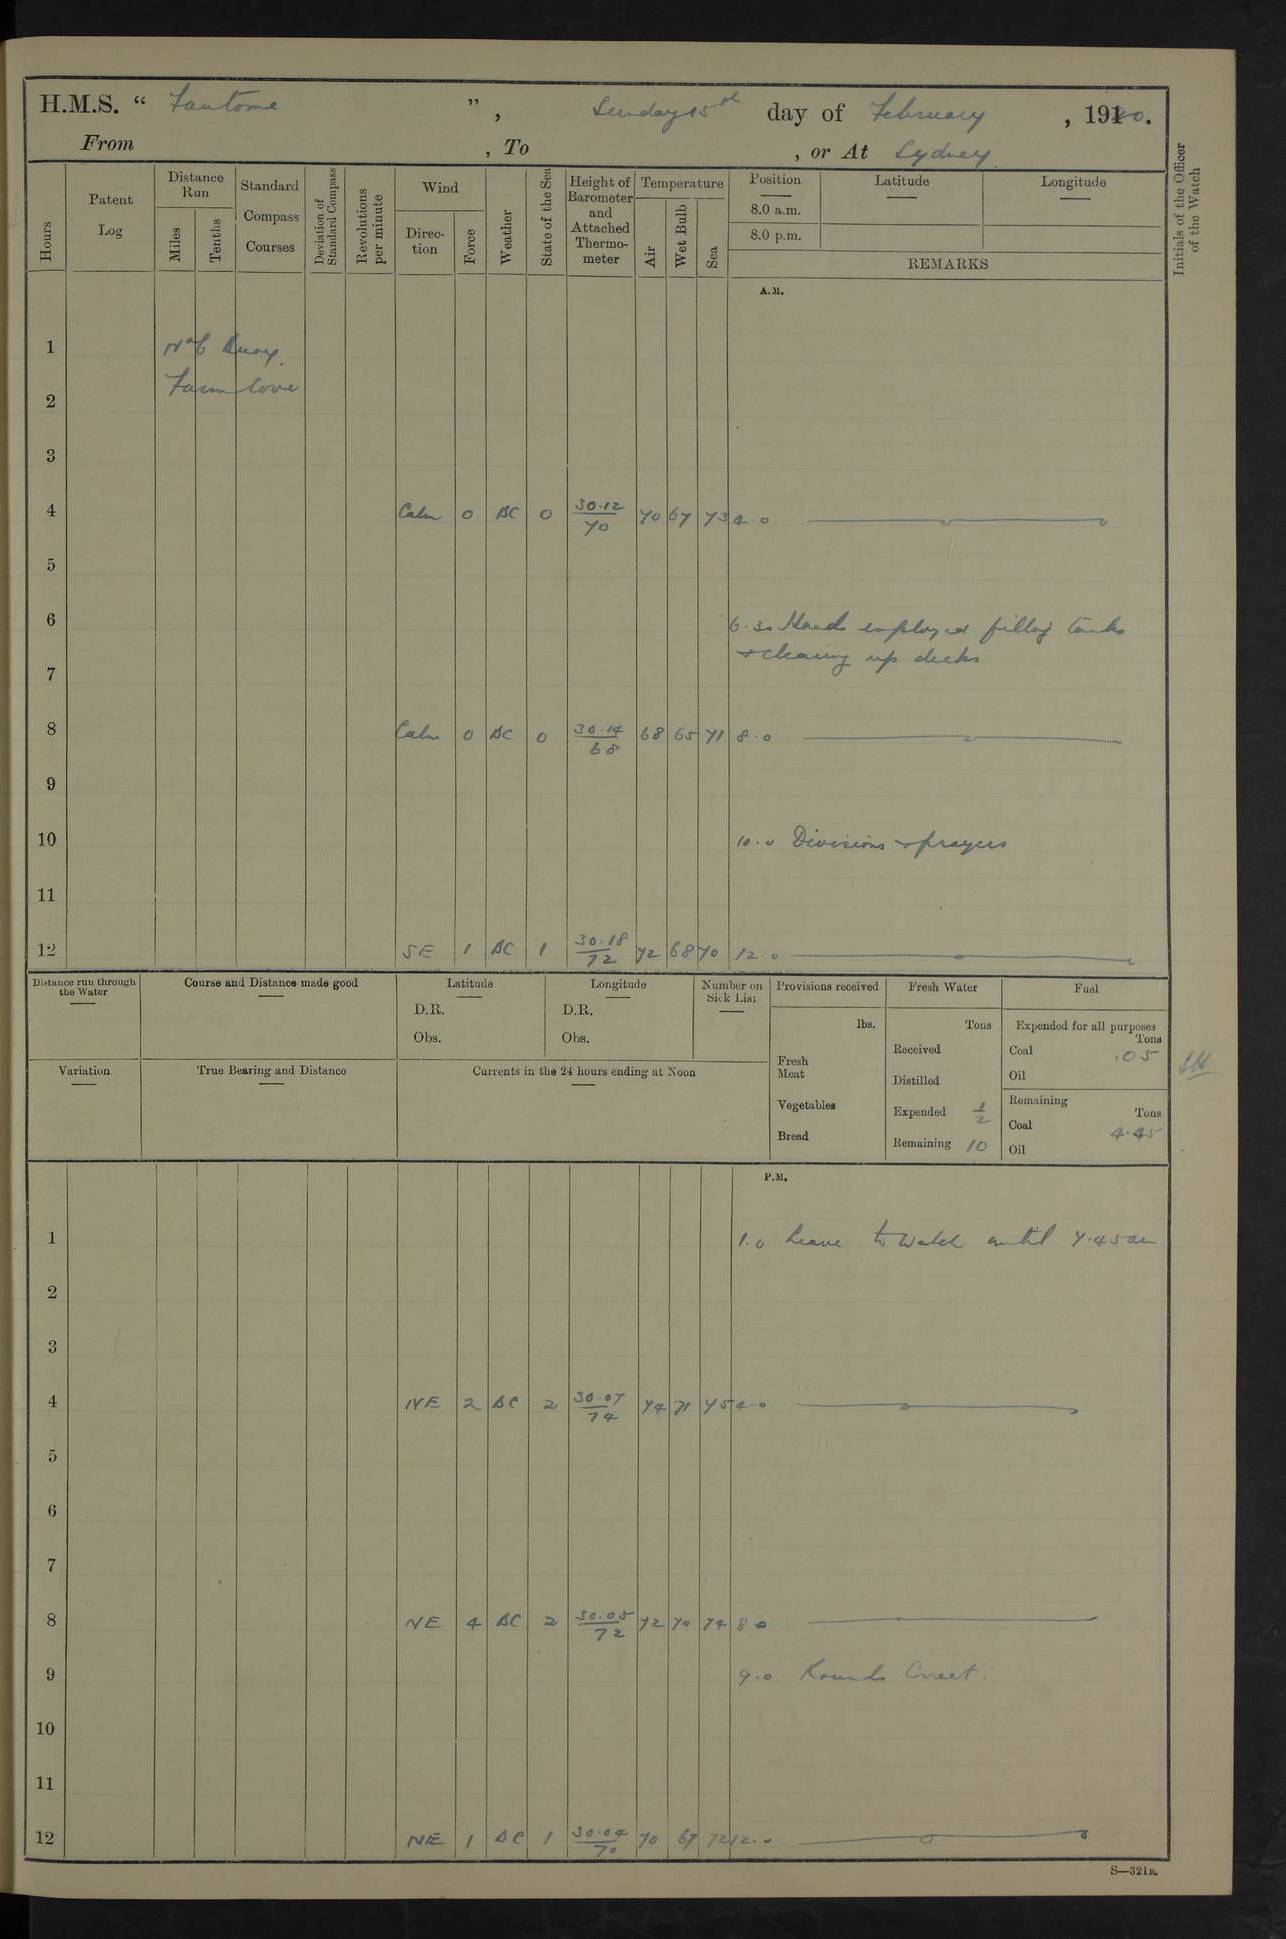 H.M.S. “ Fantome ”, Sunday 15th day of February, 1920.
From , To , or At Sydney
Hours
Patent Log
Distance Run
Miles
Tenths
Standard Compass Courses
Deviation of Standard Compass
Revolutions per minute
Wind
Direction
Force
Weather
State of the Sea
Height of Barometer and Attached Thermometer
Temperature
Air
Wet Bulb
Sea
Position
8.0 a.m.
8.0 p.m.
Latitude
Longitude
REMARKS
Initials of the Officer of the Watch
A.M.
1 No 6 Buoy.
2 Farm Cove
3
4 Calm 0 BC 0 30.12/70 70 67 73 4.0
5
6 6.30 Hands employed filling tanks
& clearing up decks
7
8 Calm 0 BC 0 30.14/68 68 65 71 8.0
9
10 10.0 Divisions & prayers
11
12 SE 1 BC 1 30.18/72 72 68 70 12.0
Distance run through the Water
Course and Distance made good
Latitude
D.R.
Obs.
Longitude
D.R.
Obs.
Number on Sick List
Provisions received
lbs.
Fresh Meat
Vegetables
Bread
Fresh Water
Tons
Received
Distilled
Expended 1/2
Remaining 10
Fuel
Expended for all purposes
Tons
Coal .05
Oil
Remaining
Tons
Coal 4.45
Oil
Variation
True Bearing and Distance
Currents in the 24 hours ending at Noon
P.M.
1 1.0 Leave to Watch until 7.45 am
2
3
4 NE 2 BC 2 30.07/74 74 71 75 4.0
5
6
7
8 NE 4 BC 2 30.05/72 72 70 74 8 0
9 9.0 Rounds Correct.
10
11
12 NE 1 BC 1 30.04/70 70 67 72 12.0
S—321B.